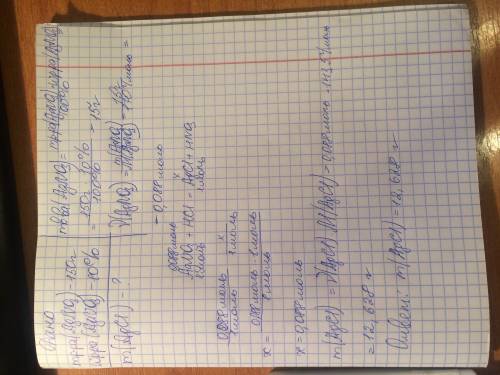 Дано
mр-ра(AgNO₃)-150г
ωр-ра(AgNO₃)-10%
m(AgCl)-?
mв-ва(AgNO₃)= mр-ра(AgNO₃)·ωр-ра(AgNO₃) / 100%
= 150г·10% / 100% = 15г
ν(AgNO₃) = m(AgNO₃) / M(AgNO₃) =
= 0,088 моль
0,088моль x
AgNO₃ + HCl = AgCl + HNO₃
1моль 1моль
0,088 моль / 1моль = x / 1 моль
x = 0,088 моль · 1 моль / 1 моль
x = 0,088 моль
m(AgCl) = ν(AgCl)·M(AgCl) = 0,088 моль ·
= 12,628 г
Ответ: m(AgCl) = 12,628 г